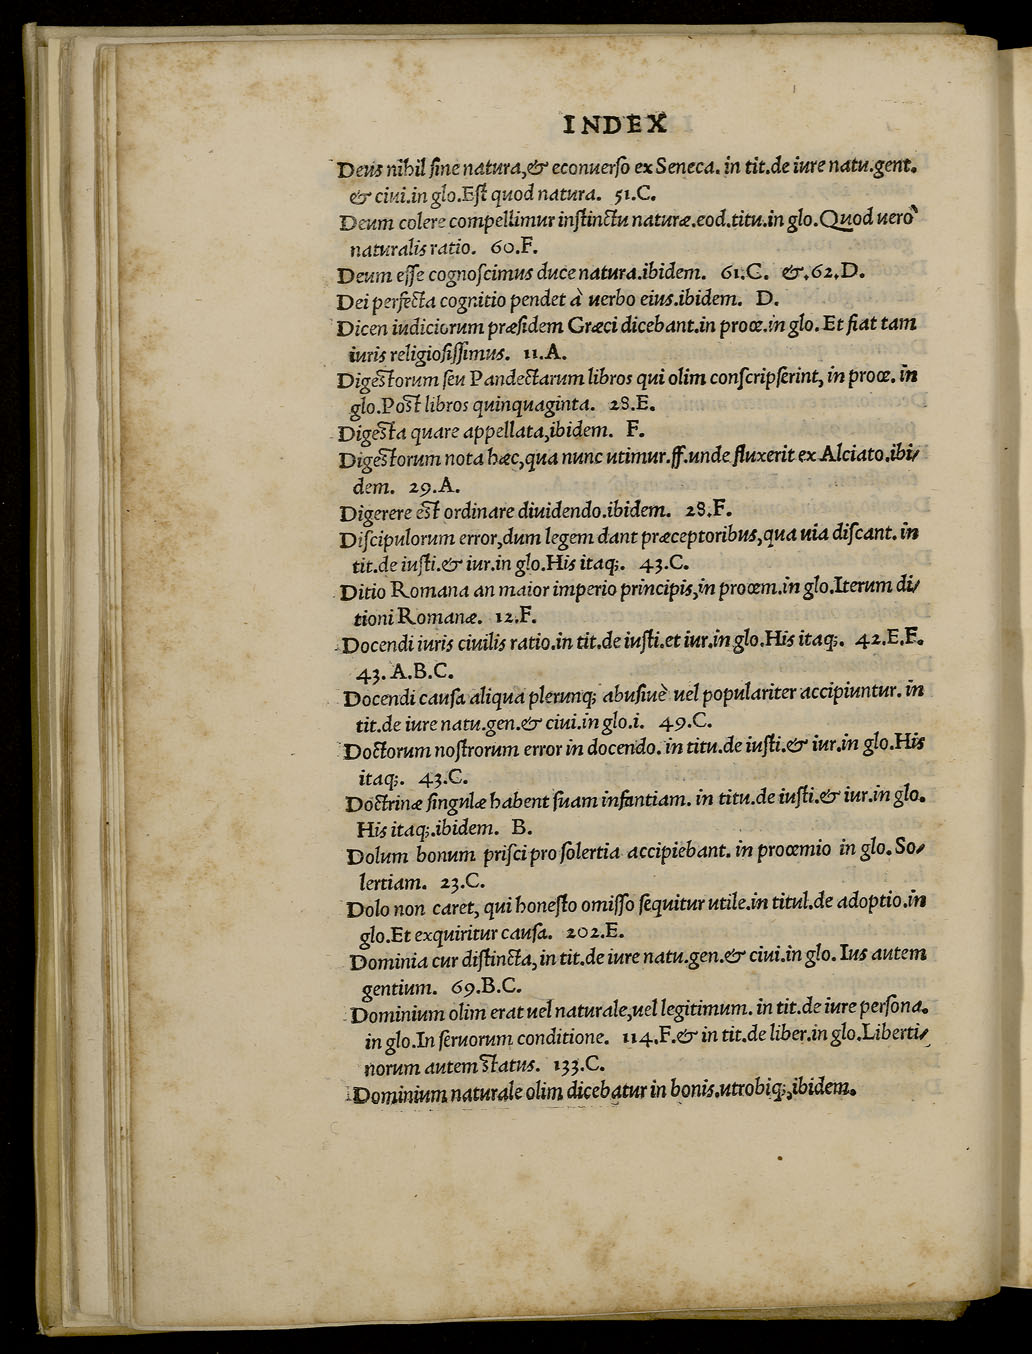 INDEX
Deus nihil ſine natura,& econuerſo ex Seneca. in tit.de iure natu.gent.
& ciui.in glo.Eſt quod natura. 51.C.
Deum colere compellimur inſtinctu naturæ.eod.titu.in glo.Quod uerò
naturalis ratio. 60.F.
Deum eſſe cognoſcimus duce natura.ibidem. 61.C. &.62.D.
Dei perfecta cognitio pendet à uerbo eius.ibidem. D.
Dicen iudiciorum præſidem Græci dicebant.in proœ.in glo.Et fiat tam
iuris religioſiſſimus. 11.A.
Digeſtorum ſeu Pandectarum libros qui olim conſcripſerint, in proœ. in
glo.Poſt libros quinquaginta. 28.E.
Digeſta quare appellata,ibidem. F.
Digeſtorum nota hæc,qua nunc utimur.ff.unde fluxerit ex Alciato.ibi/
dem. 29.A.
Digerere eſt ordinare diuidendo.ibidem. 28.F.
Diſcipulorum error,dum legem dant præceptoribus,qua uia diſcant. in
tit.de iuſti.& iur.in glo.His itaq;. 43.C.
Ditio Romana an maior imperio principis,in proœm.in glo.Iterum di/
tioni Romanæ. 12.F.
Docendi iuris ciuilis ratio.in tit.de iuſti.et iur.in glo.His itaq;. 42.E.F.
43.A.B.C.
Docendi cauſa aliqua plerunq; abuſiuè uel populariter accipiuntur. in
tit.de iure natu.gen.& ciui.in glo.i. 49.C.
Doctorum noſtrorum error in docendo. in titu.de iuſti.& iur.in glo.His
itaq;. 43.C.
Doctrinæ ſingulæ habent ſuam infantiam. in titu.de iuſti.& iur.in glo.
His itaq;.ibidem. B.
Dolum bonum priſci pro ſolertia accipiebant. in proœmio in glo. So/
lertiam. 23.C.
Dolo non caret, qui honeſto omiſſo ſequitur utile.in titul.de adoptio.in
glo.Et exquiritur cauſa. 202.E.
Dominia cur diſtincta, in tit.de iure natu.gen.& ciui.in glo. Ius autem
gentium. 69.B.C.
Dominium olim erat uel naturale,uel legitimum. in tit.de iure perſona.
in glo.In ſeruorum conditione. 114.F.& in tit.de liber.in glo.Liberti/
norum autem ſtatus. 133.C.
Dominium naturale olim dicebatur in bonis.utrobiq;,ibidem.